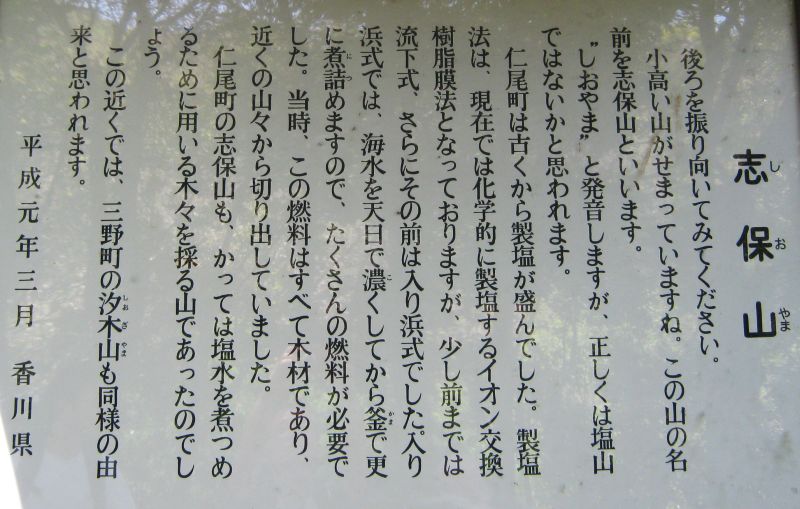 志保山
しおやま
後ろを振り向いてみてください。
小高い山がせまっていますね。この山の名
前を志保山といいます。
〝しおやま〟と発音しますが、正しくは塩山
ではないかと思われます。
仁尾町は古くから製塩が盛んでした。製塩
法は、現在では化学的に製塩するイオン交換
樹脂膜法となっておりますが、少し前までは
流下式、さらにその前は入り浜式でした。入り
浜式では、海水を天日で濃くしてから釜で更
に煮詰めますので、たくさんの燃料が必要で
した。当時、この燃料はすべて木材であり、
近くの山々から切り出していました。
仁尾町の志保山も、かっては塩水を煮つめ
るために用いる木々を採る山であったのでし
ょう。
この近くでは、三野町の汐木山も同様の由
来と思われます。
平成元年三月 香川県